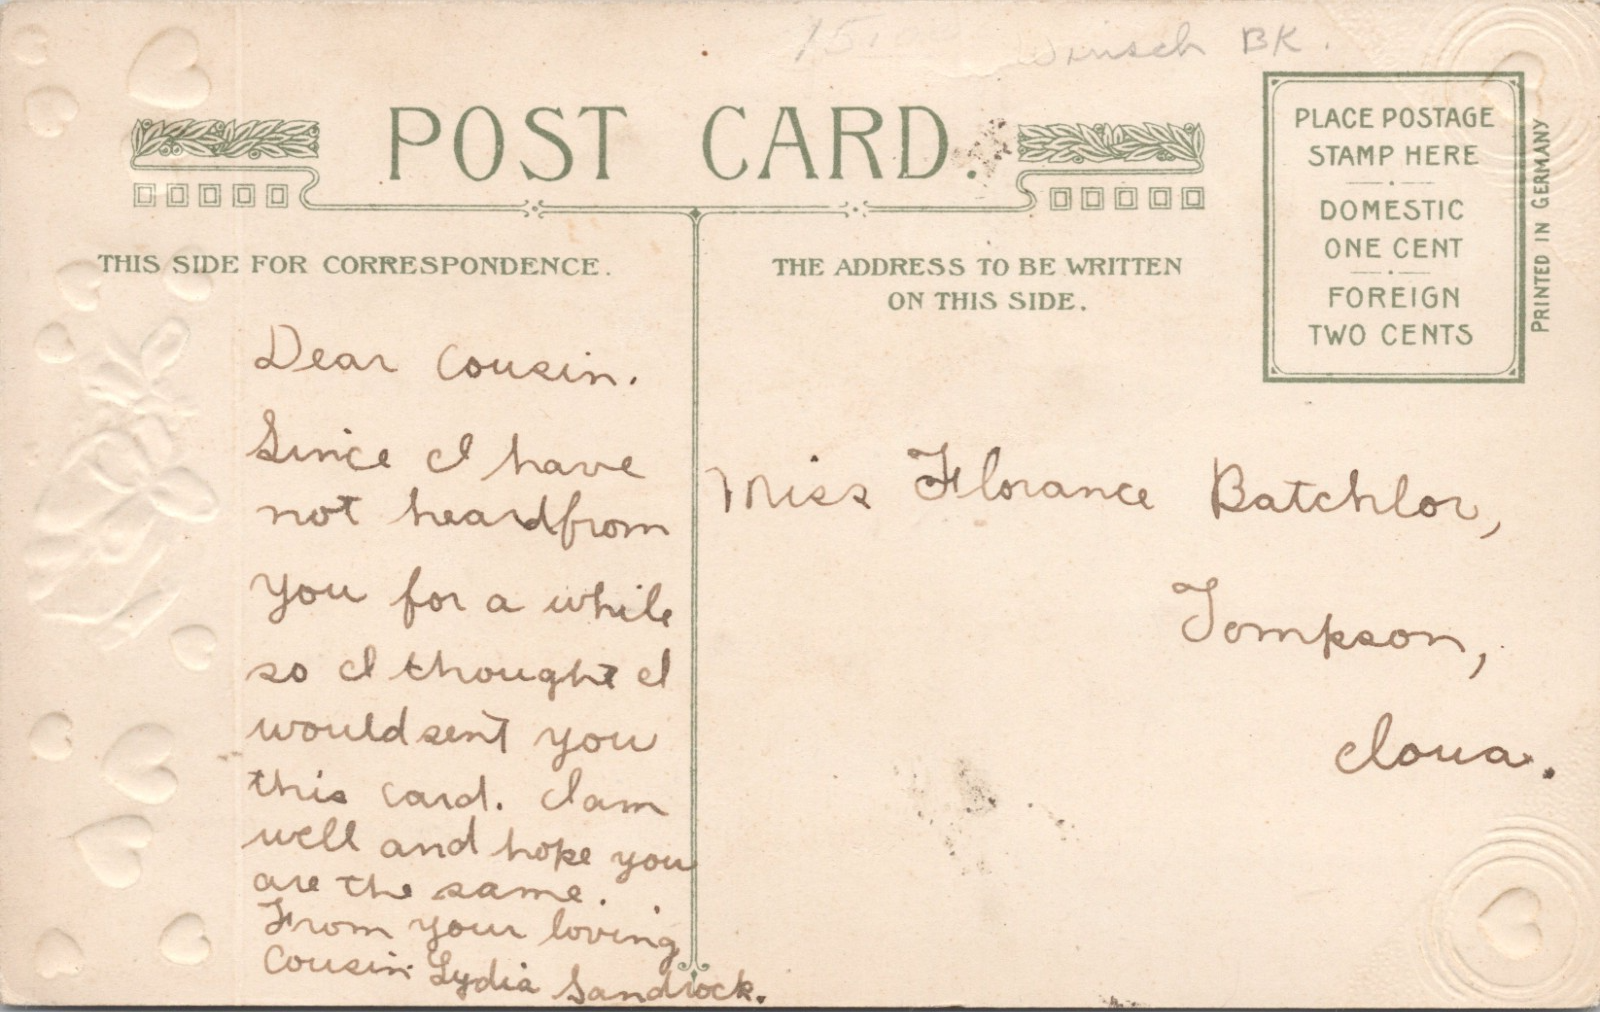 15. Winsch BK.
POST CARD.
THIS SIDE FOR CORRESPONDENCE.
THE ADDRESS TO BE WRITTEN
ON THIS SIDE.
PLACE POSTAGE
STAMP HERE
DOMESTIC
ONE CENT
FOREIGN
TWO CENTS
PRINTED IN GERMANY
Dear Cousin.
Since I have
not heard from
you for a while
so I thought I
would sent you
this card. I am
well and hope you
are the same.
From your loving
Cousin Lydia Sandrock.
Miss Florance Batchlor,
Tompson,
Ioua.